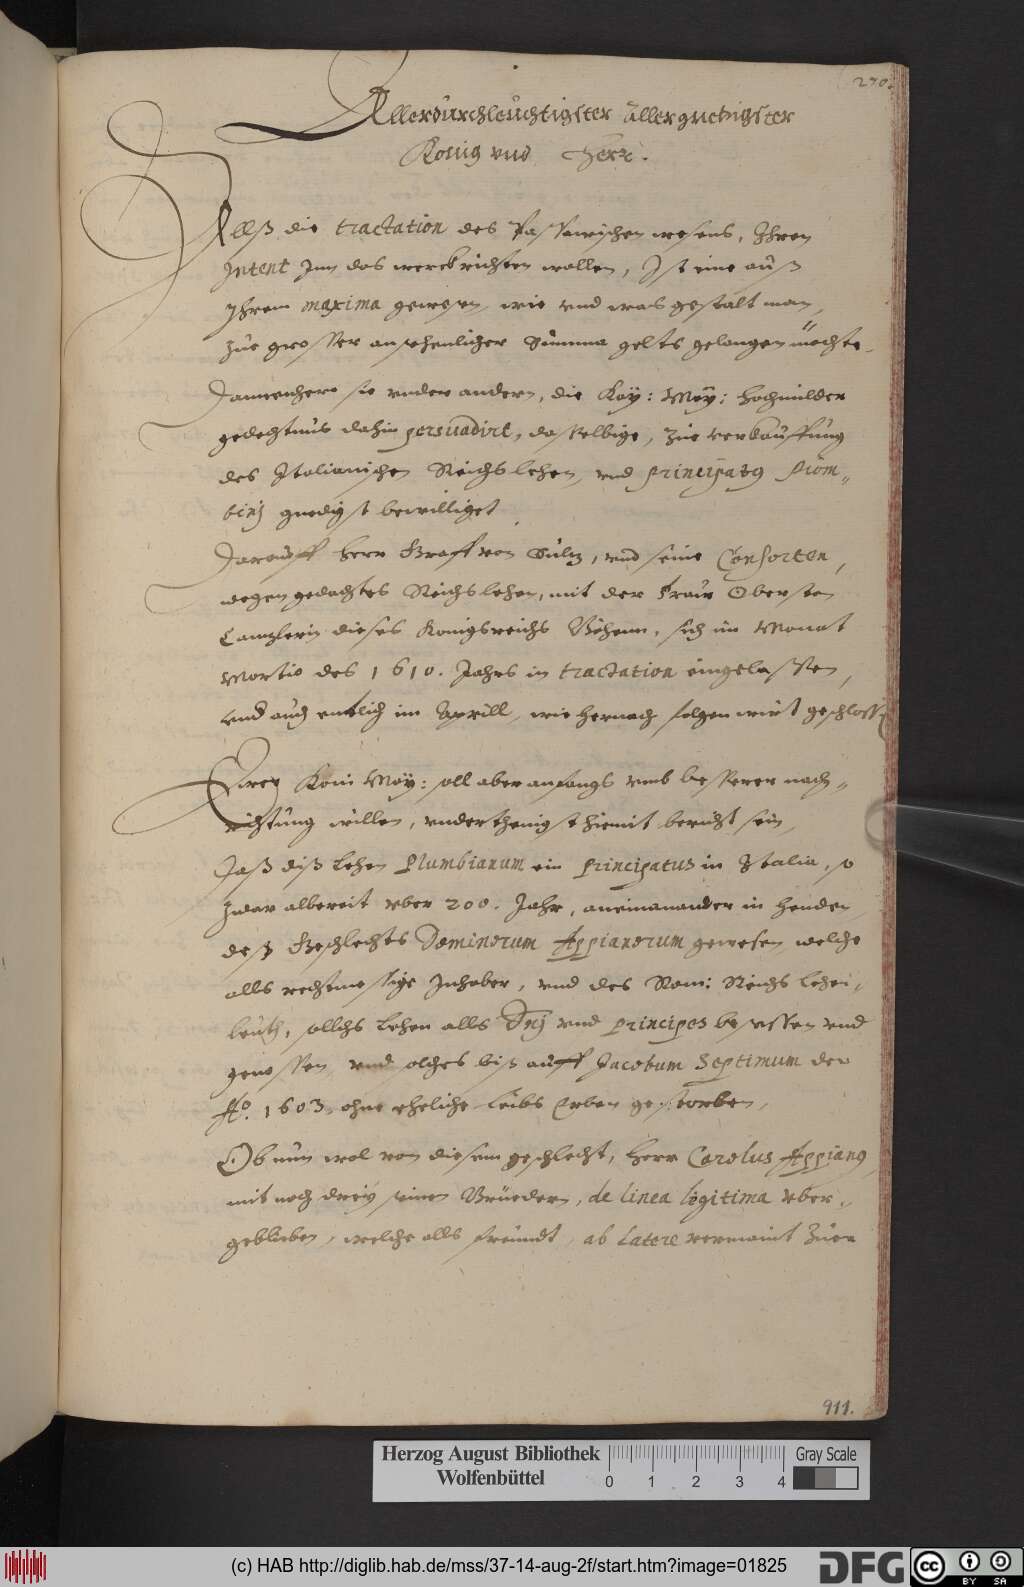 270.
Allerdurchleuchtigster Allergnedigster
König vnd Herr.
Allß die tractation des Passawischen wesens, Ihren
Intent Inn das werck richten wollen, Ist eine auß
Ihrem maxima gewesen, wie vnd was gestalt man,
zue grosser ansehenlicher Summa gelts gelangen möchte.
Dannenhero sie vnder andern, die Kay: May: hochmilder
gedechtnus dahin persuadirt, dasselbige, zue verkauffung
des Italianischen Reichslehen, vnd principatg Piom-
binj gnedigst bewilliget
Darauff Herr Graff von Sultz, vnd seine Consorten,
wegen gedachtes Reichslehen, mit der Fraw Obersten
Cantzlerin dieses Konigsreichs Böhem, sich im Monat
Martio des 1610. Jahrs in tractation eingelassen,
vnd auch entlich im Aprill, wie hernach folgen wirt geschlossen
Ewer Kön: May: soll aber anfangs vmb besserer nach-
richtung willen, vnderthenigst hiemit bericht sein,
Daß diß Lehen Plumbianum ein principatus in Italia, so
zwar albereit vber 200. Jahr, aneinanander in henden
deß Geschlechts Dominorum Appianorum gewesen, welche
alls rechtmessige Inhaber, vnd des Rom: Reichs Lehen-
leuth, sollchs Lehen alls Dnj vnd principes besessen vnd
genossen, vnd solches biß auff Jacobum Septimum der
Ao. 1603, ohne eheliche Leibs Erben gestorben,
Ob nun wol von diesem geschlecht, Herr Carolus Appiang
mit noch dreÿ seinen Brüedern, de linea legitima vber-
geblieben, welche alls freundt, ab Latere vermaint Zuen
911.
Herzog August Bibliothek
Wolfenbüttel
0 1 2 3 4
Gray Scale
(c) HAB http://diglib.hab.de/mss/37-14-aug-2f/start.htm?image=01825
DFG
cc BY SA